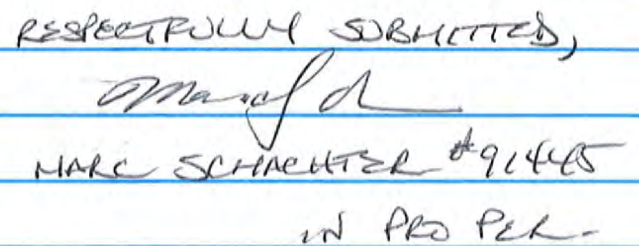 RESPECTFULLY SUBMITTED,
MARC SCHACHTER #91445
IN PRO PER.